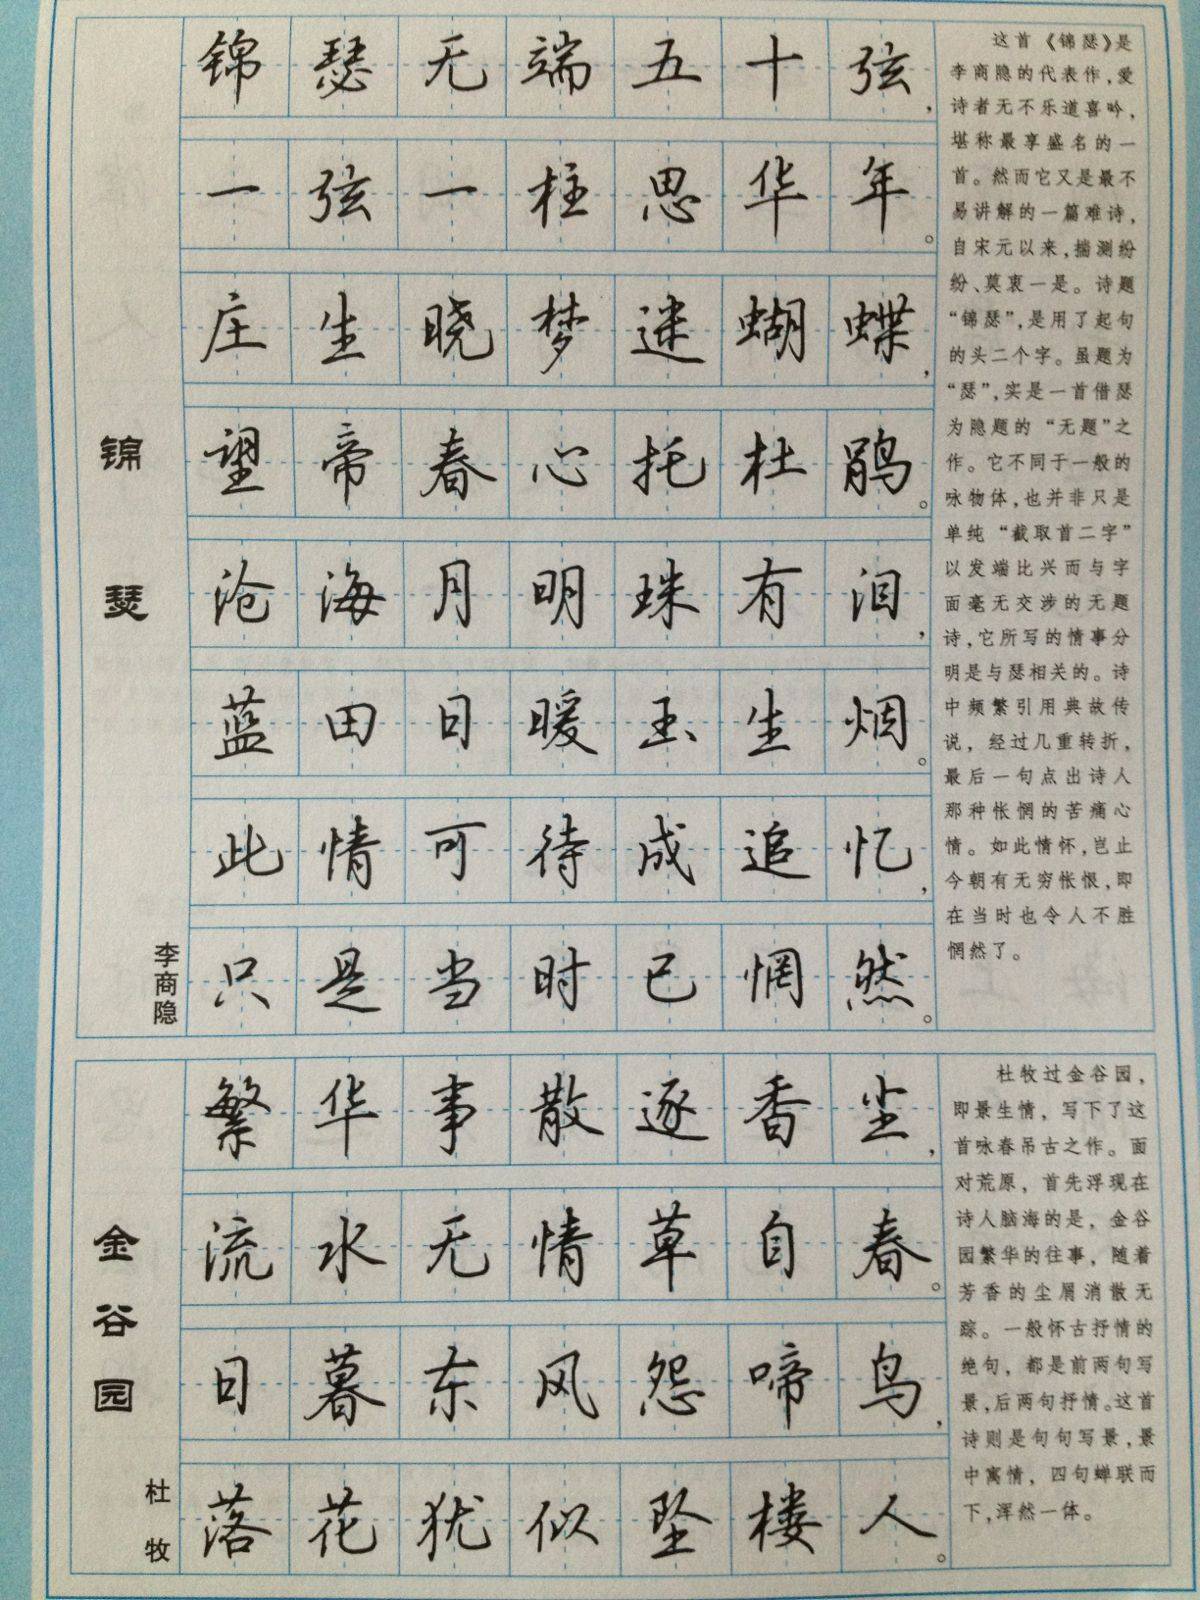 锦瑟
李商隐
锦瑟无端五十弦，
一弦一柱思华年。
庄生晓梦迷蝴蝶，
望帝春心托杜鹃。
沧海月明珠有泪，
蓝田日暖玉生烟。
此情可待成追忆，
只是当时已惘然。
这首《锦瑟》是
李商隐的代表作，爱
诗者无不乐道喜吟，
堪称最享盛名的一
首。然而它又是最不
易讲解的一篇难诗，
自宋元以来，揣测纷
纷、莫衷一是。诗题
“锦瑟”，是用了起句
的头二个字。虽题为
“瑟”，实是一首借瑟
为隐题的“无题”之
作。它不同于一般的
咏物体，也并非只是
单纯“截取首二字”
以发端比兴而与字
面毫无交涉的无题
诗，它所写的情事分
明是与瑟相关的。诗
中频繁引用典故传
说，经过几重转折，
最后一句点出诗人
那种怅惘的苦痛心
情。如此情怀，岂止
今朝有无穷怅恨，即
在当时也令人不胜
惘然了。
金谷园
杜牧
繁华事散逐香尘，
流水无情草自春。
日暮东风怨啼鸟，
落花犹似坠楼人。
杜牧过金谷园，
即景生情，写下了这
首咏春吊古之作。面
对荒原，首先浮现在
诗人脑海的是，金谷
园繁华的往事，随着
芳香的尘屑消散无
踪。一般怀古抒情的
绝句，都是前两句写
景，后两句抒情。这首
诗则是句句写景，景
中寓情，四句蝉联而
下，浑然一体。